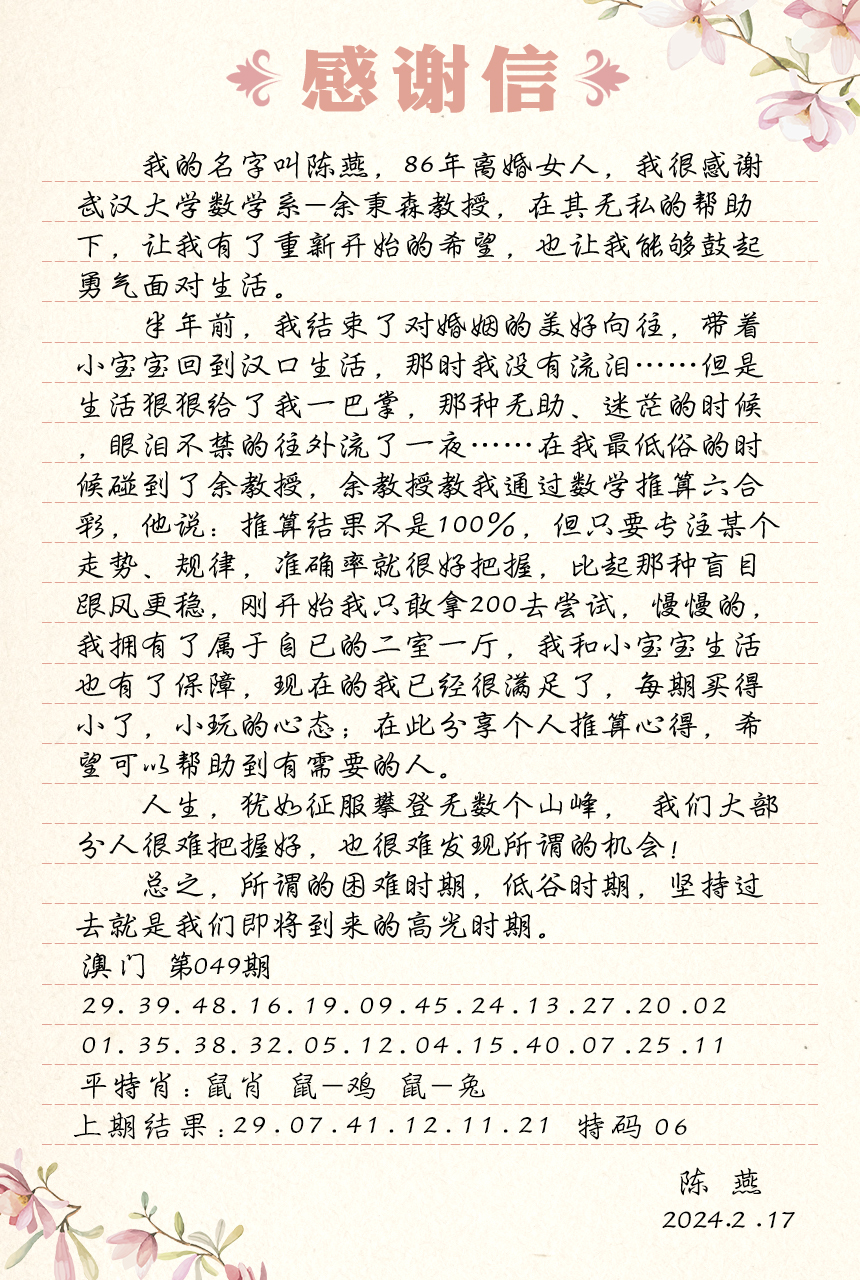 感谢信
我的名字叫陈燕，86年离婚女人，我很感谢
武汉大学数学系—余秉森教授，在其无私的帮助
下，让我有了重新开始的希望，也让我能够鼓起
勇气面对生活。
半年前，我结束了对婚姻的美好向往，带着
小宝宝回到汉口生活，那时我没有流泪……但是
生活狠狠给了我一巴掌，那种无助、迷茫的时候
，眼泪不禁的往外流了一夜……在我最低俗的时
候碰到了余教授，余教授教我通过数学推算六合
彩，他说：推算结果不是100%，但只要专注某个
走势、规律，准确率就很好把握，比起那种盲目
跟风更稳，刚开始我只敢拿200去尝试，慢慢的，
我拥有了属于自已的二室一厅，我和小宝宝生活
也有了保障，现在的我已经很满足了，每期买得
小了，小玩的心态；在此分享个人推算心得，希
望可以帮助到有需要的人。
人生，犹如征服攀登无数个山峰， 我们大部
分人很难把握好，也很难发现所谓的机会！
总之，所谓的困难时期，低谷时期，坚持过
去就是我们即将到来的高光时期。
澳门 第049期
29.39.48.16.19.09.45.24.13.27.20.02
01.35.38.32.05.12.04.15.40.07.25.11
平特肖：鼠肖 鼠—鸡 鼠—兔
上期结果：29.07.41.12.11.21 特码 06
陈 燕
2024.2.17